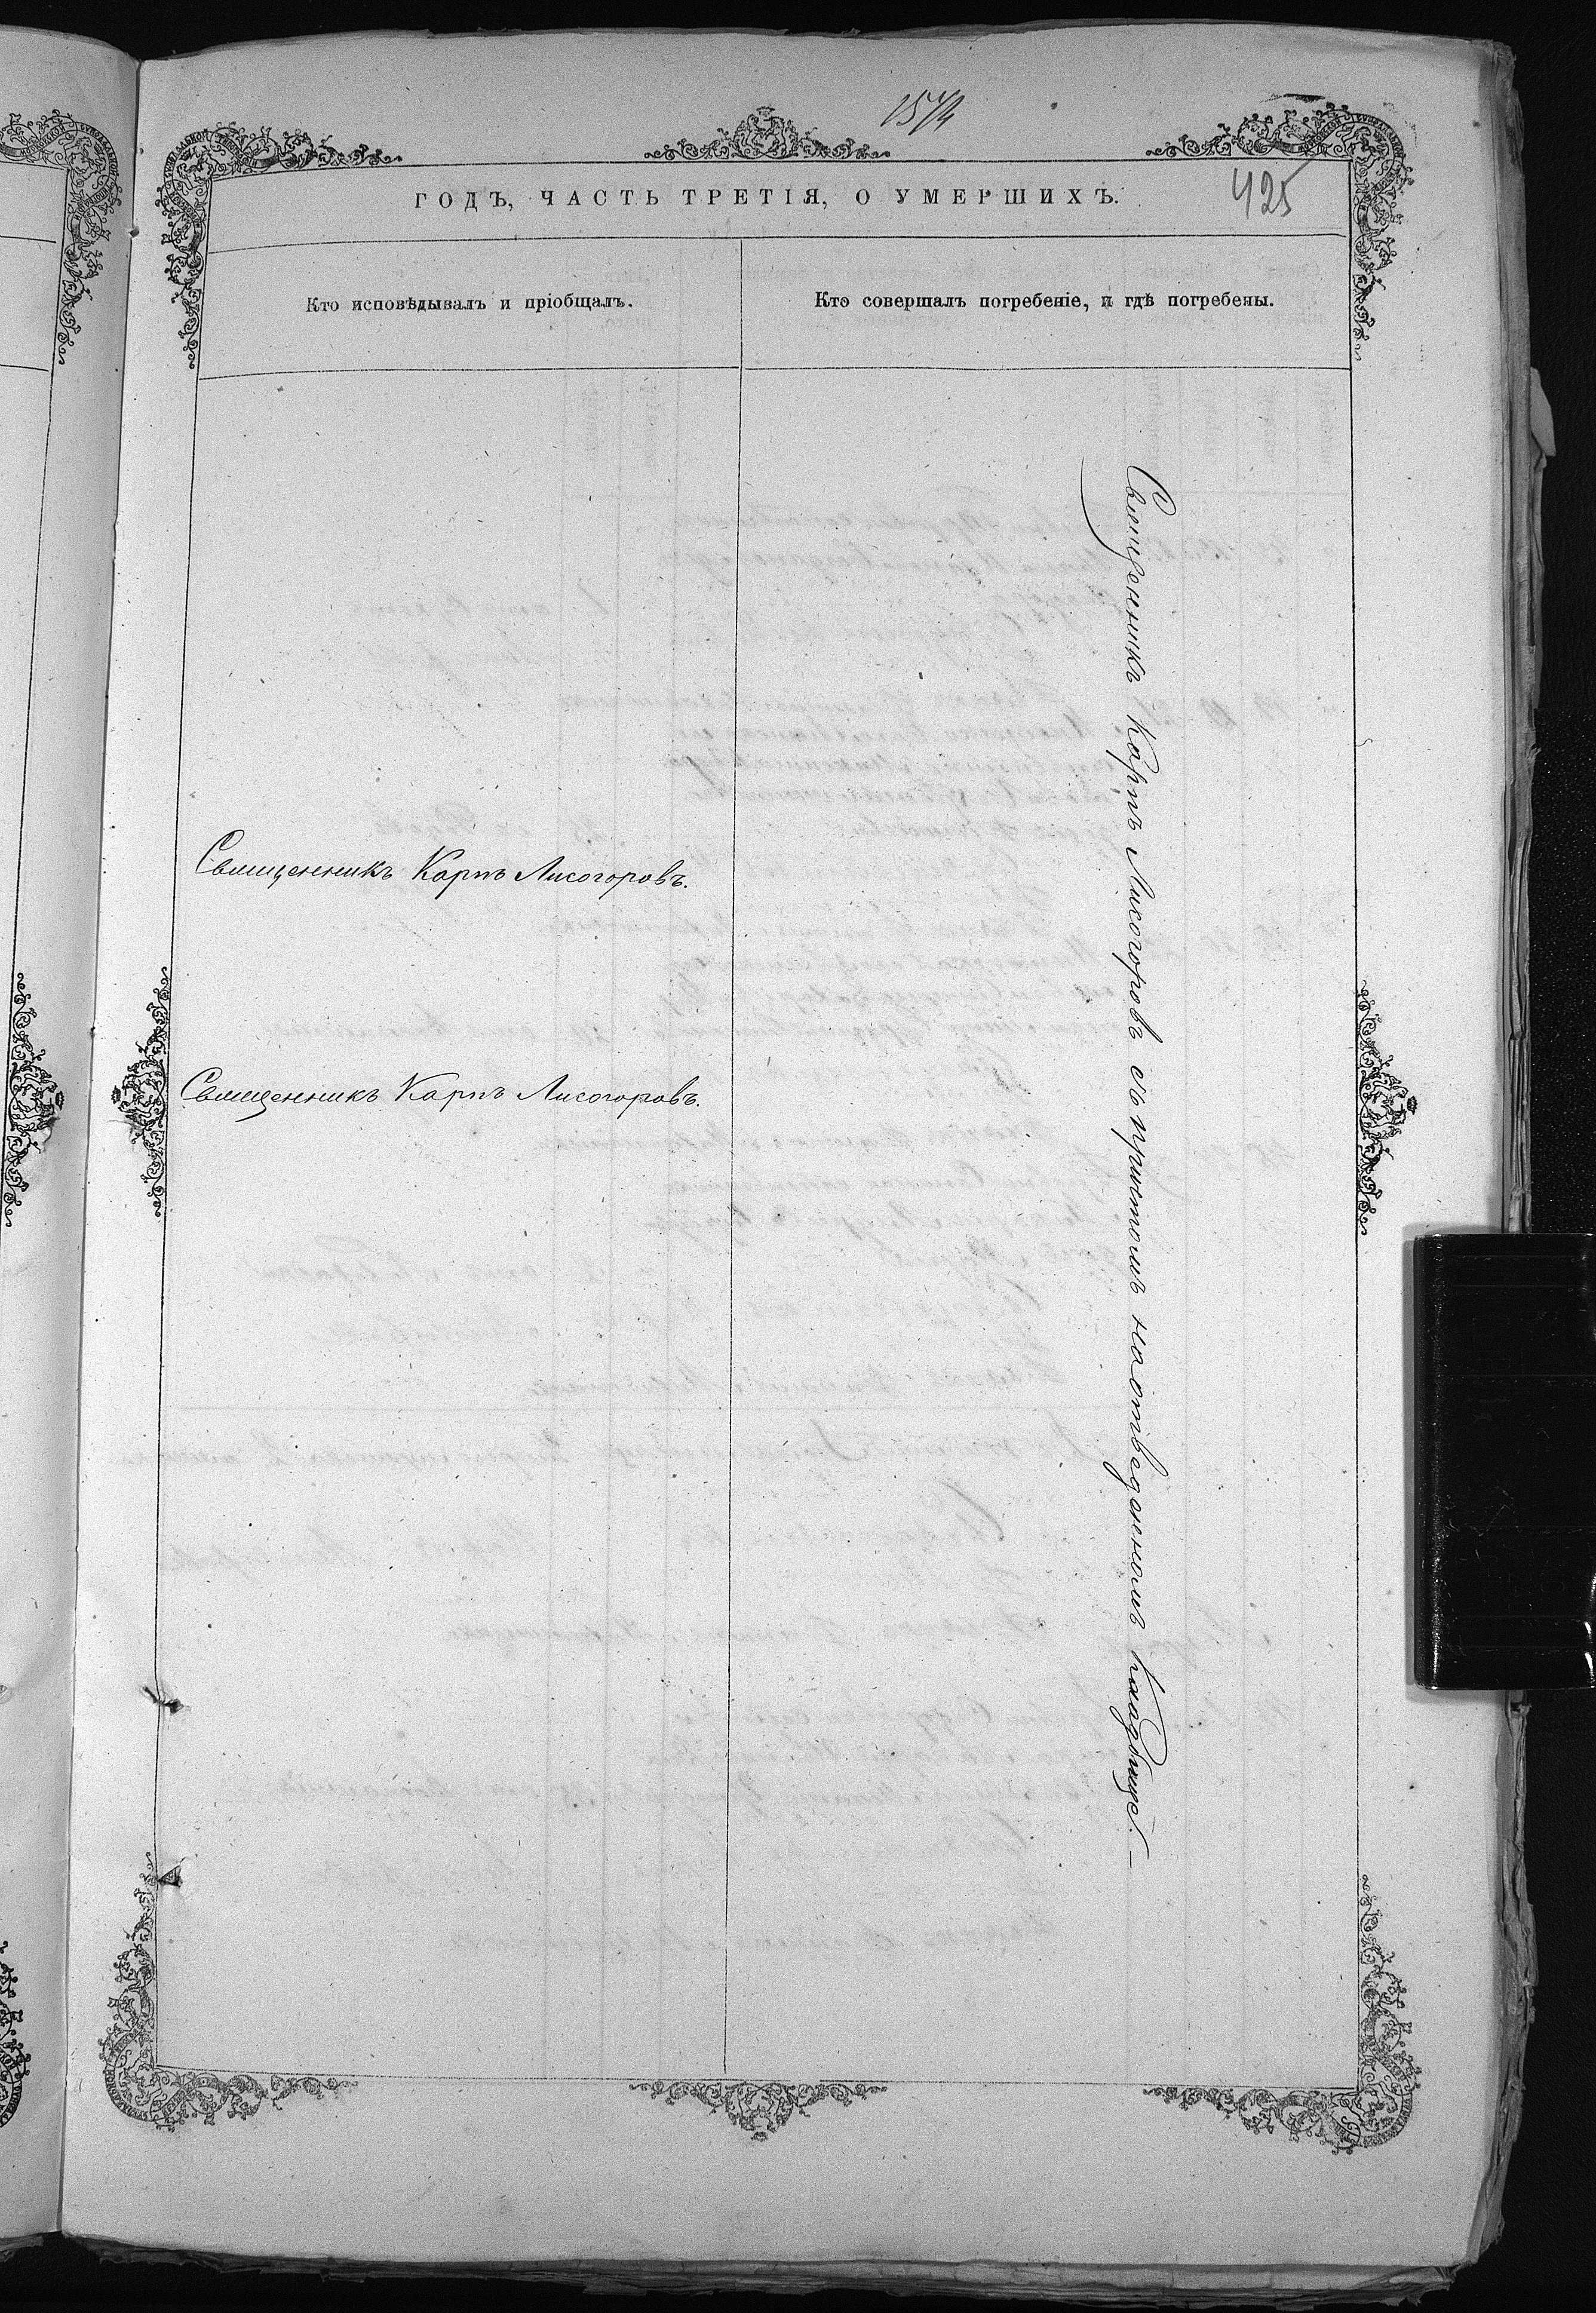 425
ГОДЪ, ЧАСТЬ ТРЕТІЯ, О УМЕРШИХЪ.
Кто исповѣдывалъ и пріобщалъ.
Кто совершалъ погребеніе, и гдѣ погребены.
Священникъ Карпъ Лисогоровъ.
Священникъ Карпъ Лисогоровъ.
Священникъ Карпъ Лисогоровъ съ причтомъ на отведеномъ кладбище. —